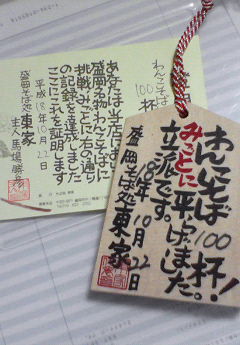 わんこそば
100杯！
みごとに平らげました。
立派です。
18年10月22日
盛岡そば処東家
わんこそば
100杯
あなたは当店における
盛岡名物わんこそばに
挑戦みごとに右の通り
の記録を達成しました
ここにこれを証明します
平成18年10月22日
盛岡そば処 東家
主人 馬場勝彦